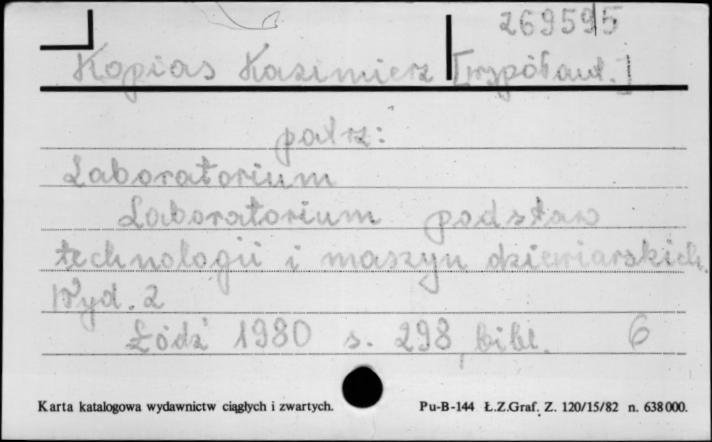 269595
Kopias Kazimierz [współaut.]
patrz:
Laboratorium
Laboratorium podstaw
technologii i maszyn dziewiarskich.
Wyd. 2
Łódź 1980 s. 298, bibl. 6
Karta katalogowa wydawnictw ciągłych i zwartych. Pu-B-144 Ł.Z.Graf. Z. 120/15/82 n. 638000.